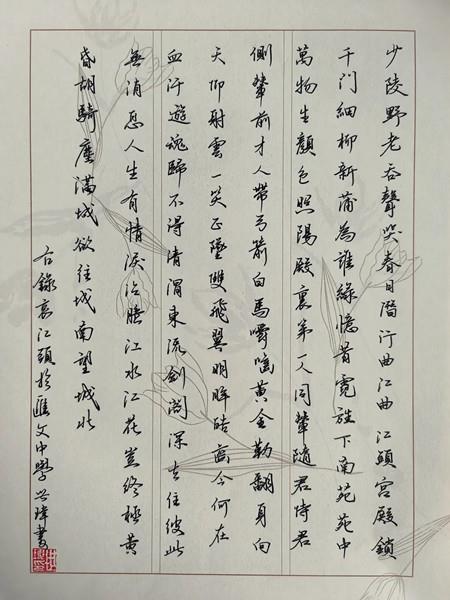 少陵野老吞聲哭春日潛行曲江曲江頭宮殿鎖
千門細柳新蒲為誰綠憶昔霓旌下南苑苑中
萬物生顏色照陽殿裏第一人同輦隨君侍君
側輦前才人帶弓箭白馬嚼嚙黃金勒翻身向
天仰射雲一笑正墜雙飛翼明眸皓齒今何在
血汙遊魂歸不得清渭東流劍閣深去住彼此
無消息人生有情淚沾臆江水江花豈終極黃
昏胡騎塵滿城欲往城南望城北
右錄哀江頭於匯文中學瑋書